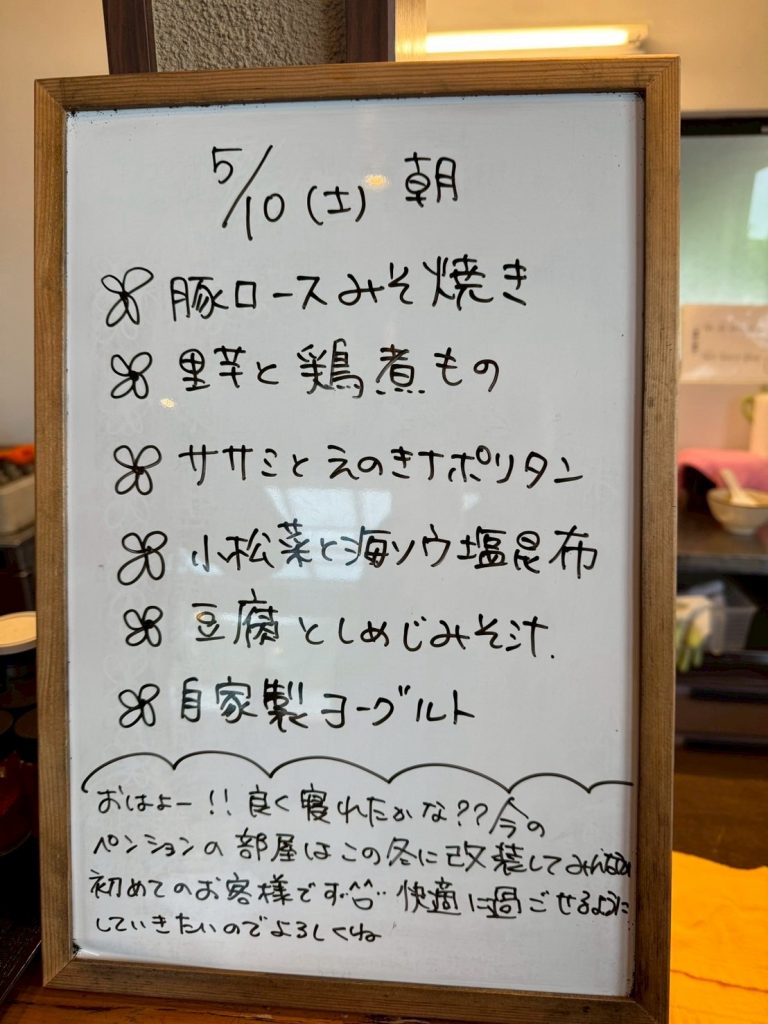 5/10(土) 朝
豚ロースみそ焼き
里芋と鶏煮もの
ササミとえのきナポリタン
小松菜と海ソウ塩昆布
豆腐としめじみそ汁.
自家製ヨーグルト
おはよー!!良く寝れたかな??今の
ペンションの部屋はこの冬に改装してみんなが
初めてのお客様です^^ 快適に過ごせるように
していきたいのでよろしくね